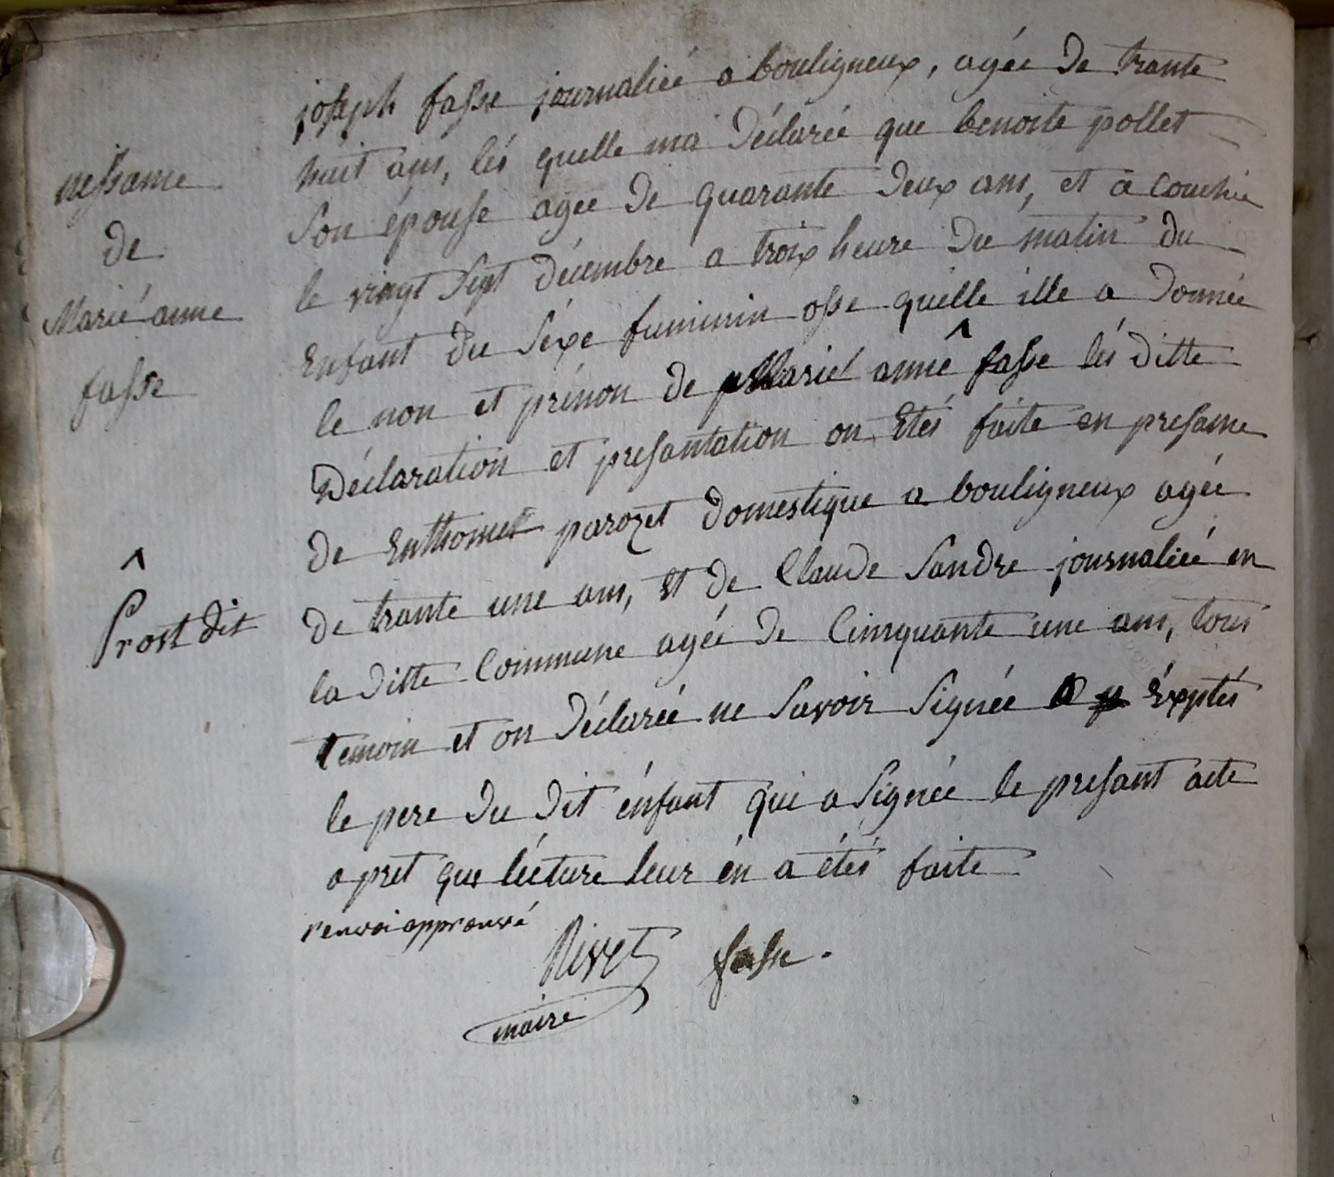 joseph fasse journalieé a bouligneux, agée De trante
huit ans, lés quelle ma Déclareé que benoite pollet
Son épouse agée De quarante Deux ans, et a couchée
le vingt Sept décembre a troix heure Du matin du
Enfant du Séxe fuminin osse quielle ille a Donnée
le non et prénon de Marie anne ^ fasse lés ditte
Déclaration et presantation on Etés faite en presance
de Enthomet parozet Domestique a bouligneux agée
de trante une ans, et de Claude Sandre journalieé en
la Ditte Commune agée de Cinquante une ans, tous
temoin et on Déclareé ne Savoir Signée Éxptés
le pere du dit énfant qui a Signée le presant acte
apret que lécture leur én a étés faite
renvoi approuvé
Rivet fasse.
maire
nessance
de
Marié anne
fasse
^
Prost dit